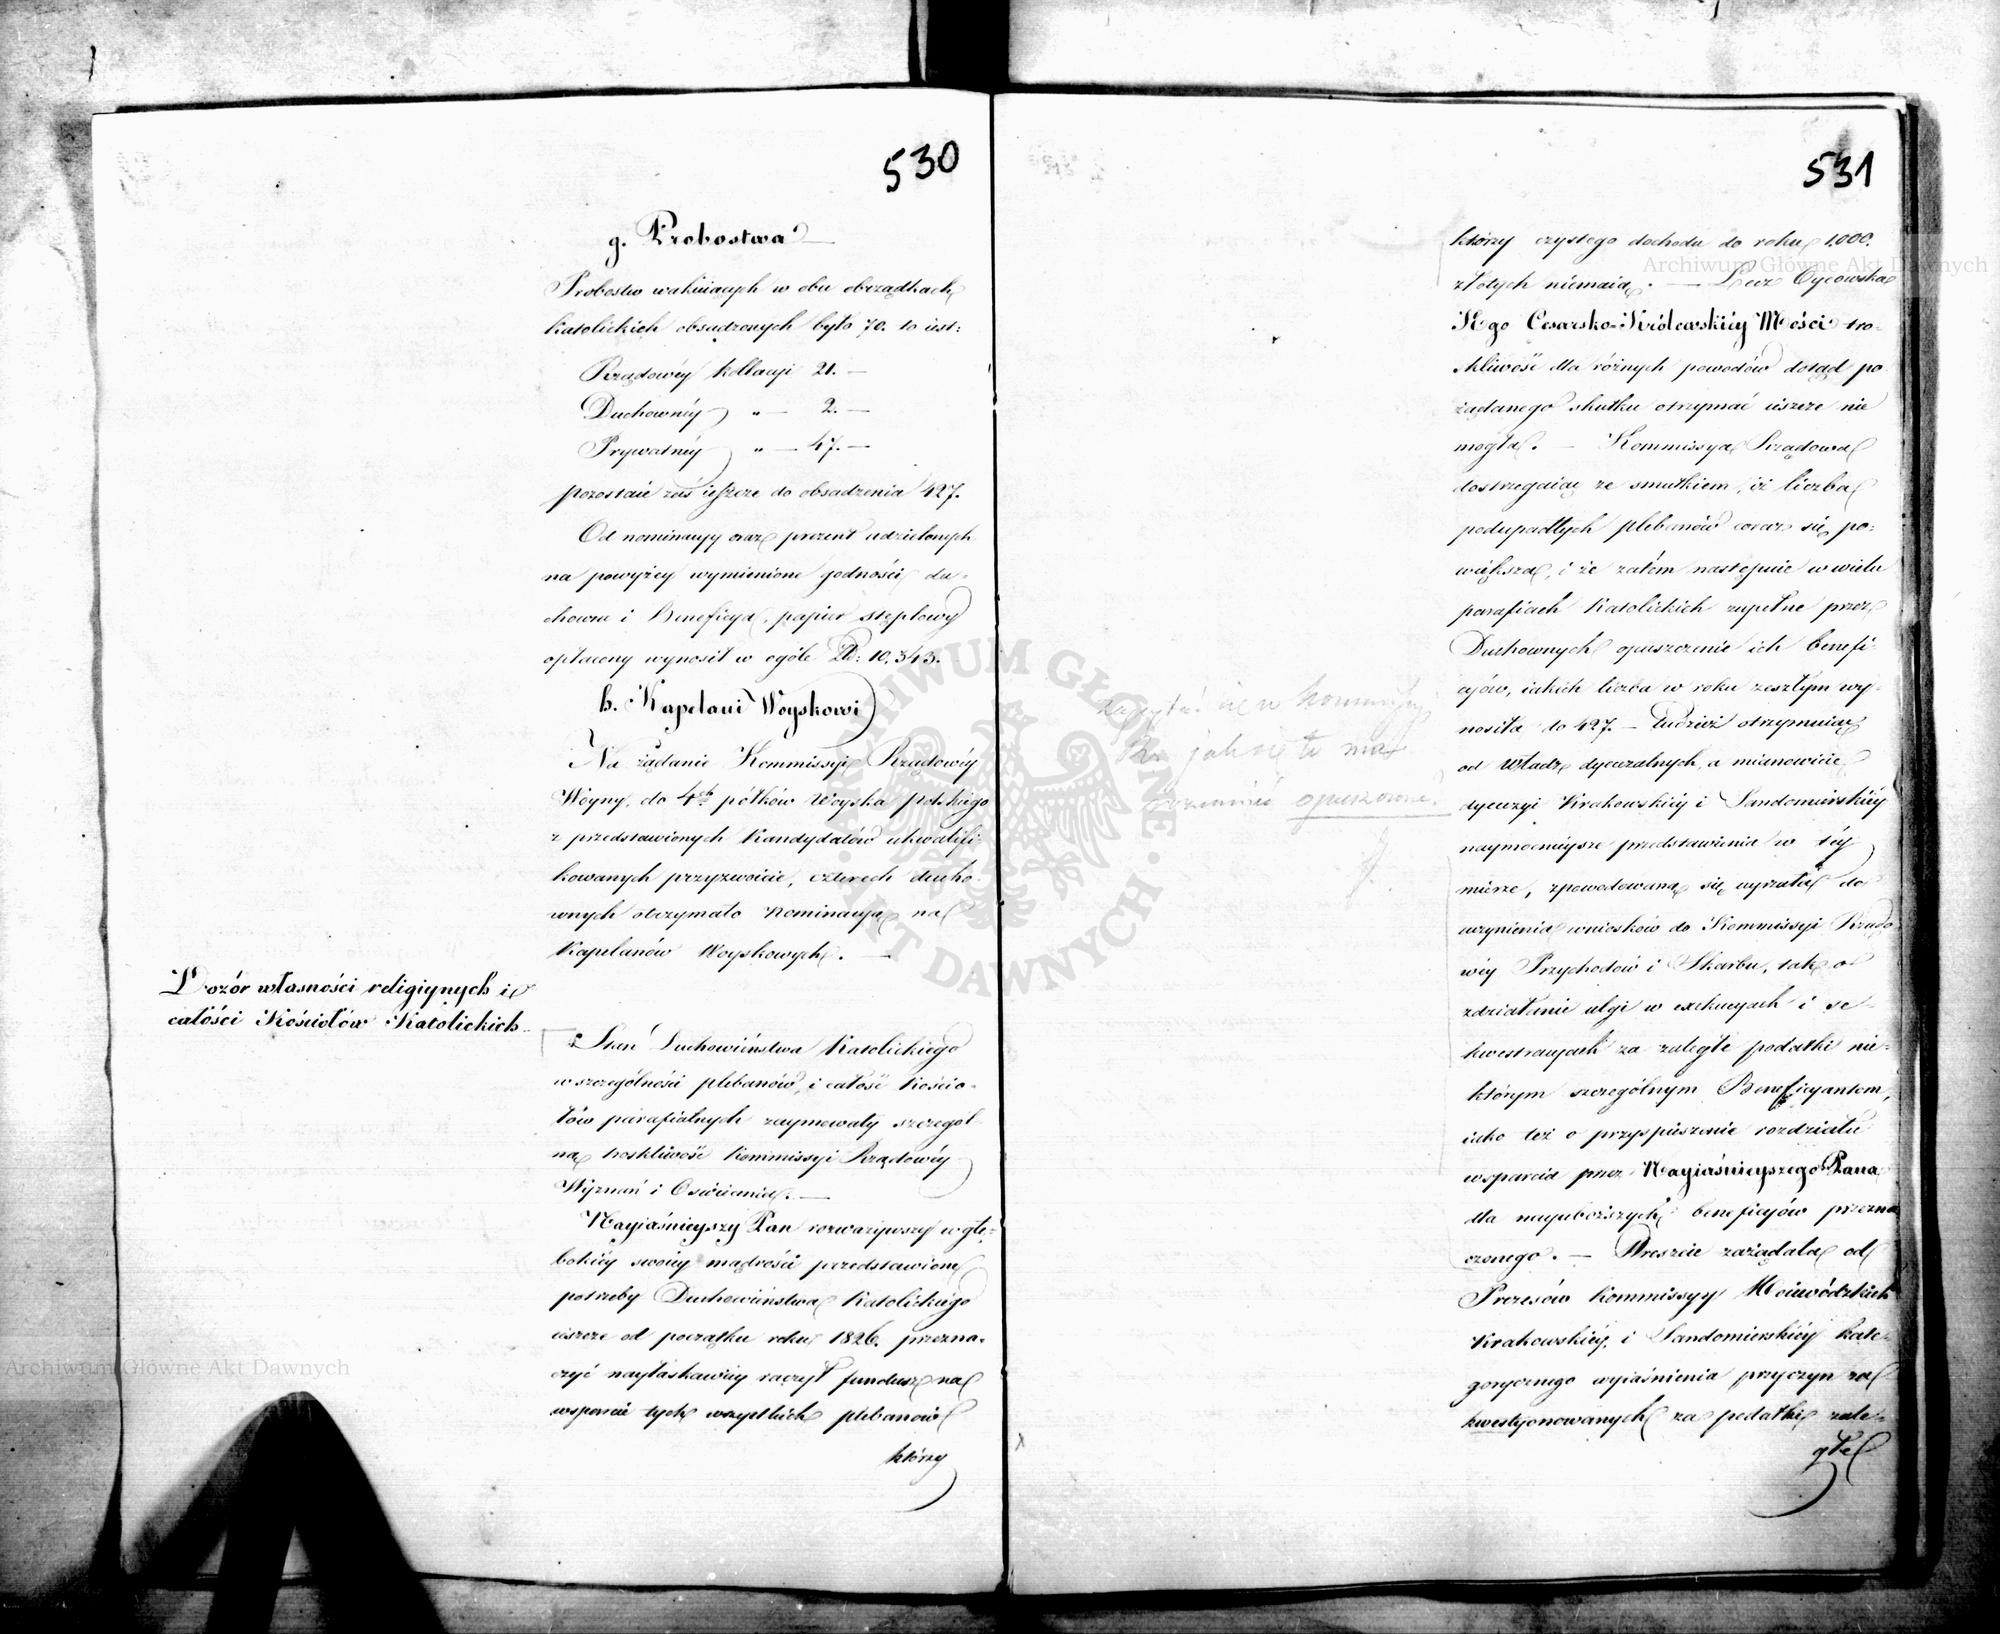 530
g. Probostwa —
Probostw wakuiących w obu obrządkach
katolickich obsadzonych było 70. to iest:
Rządowéy kollacyi 21. —
Duchownéy „ — 2. —
Prywatnéy „ — 47. —
pozostaie zaś ieszcze do obsadzenia 427.
Od nominacyy oraz prezent udzielonych
na powyżey wymienione godności du-
chowne i Beneficya, papier stęplowy
opłacony wynosił w ogóle Zł: 10,343.
h. Kapelani Woyskowi
Na żądanie Kommissyi Rządowéy
Woyny, do 4ch półków Woyska polskiego
z przedstawionych Kandydatów ukwalifi-
kowanych przyzwoicie, czterech ducho-
wnych otrzymało Nominacyą na
Kapelanów Woyskowych. —
Dozór własności religiynych i
całości Kościołów Katolickich.
Stan Duchowieństwa Katolickiego
w szczególności plebanów, i całość Kościo-
łów parafialnych zaymowały szczegól-
ną troskliwość Kommissyi Rządowéy
Wyznań i Oświecenia. —
Nayiaśnieyszy Pan rozważywszy w głę-
bokiéy swoiéy mądrości przedstawione
potrzeby Duchowieństwa Katolickiego
ieszcze od początku roku 1826. przezna-
czyć nayłaskawiéy raczył fundusz na
wsparcie tych wszystkich plebanów
którzy
531
którzy czystego dochodu do roku 1,000.
złotych niemaią. — Lecz Oycowska
Jego Cesarsko-Królewskiéy Mości tro-
skliwość dla różnych powodów dotąd po-
żądanego skutku otrzymać ieszcze nie
mogła. — Kommissya Rządowa
dostrzegaiąc ze smutkiem, iż liczba
podupadłych plebanów coraz się po-
większa, i że zatém nastąpiie w wielu
parafiach Katolickich zupełne przez
Duchownych opuszczenie ich benefi-
cyów, iakich liczba w roku zeszłym wy-
nosiła do 427. — tudzież otrzymuiąc
od Władz dyecezalnych, a mianowicie
dyecezyi Krakowskiéy i Sandomirskiéy
naymocnieysze przedstawienia w téy
mierze, spowodowaną się uyrzała do
uczynienia wniosków do Kommissyi Rządo-
wéy Przychodów i Skarbu, tak o
zdziałanie ulgi w exekucyach i se-
kwestracyach za zaległe podatki nie-
którym szczególnym Beneficyantom,
iako też o przyspieszenie rozdziału
wsparcia przez Nayiaśnieyszego Pana
dla nayuboższych beneficyów przezna-
czonego. — Wreszcie zażądała od
Prezesów Kommissyy Woiewódzkich
Krakowskiéy, i Sandomierskiéy kate-
gorycznego wyiaśnienia przyczyn za-
kwestyonowanych za podatki zale-
głe
w Kommissyi
jak się to ma
opuszczone.
Archiwum Główne Akt Dawnych
Archiwum Główne Akt Dawnych
ARCHIWUM GŁÓWNE AKT DAWNYCH